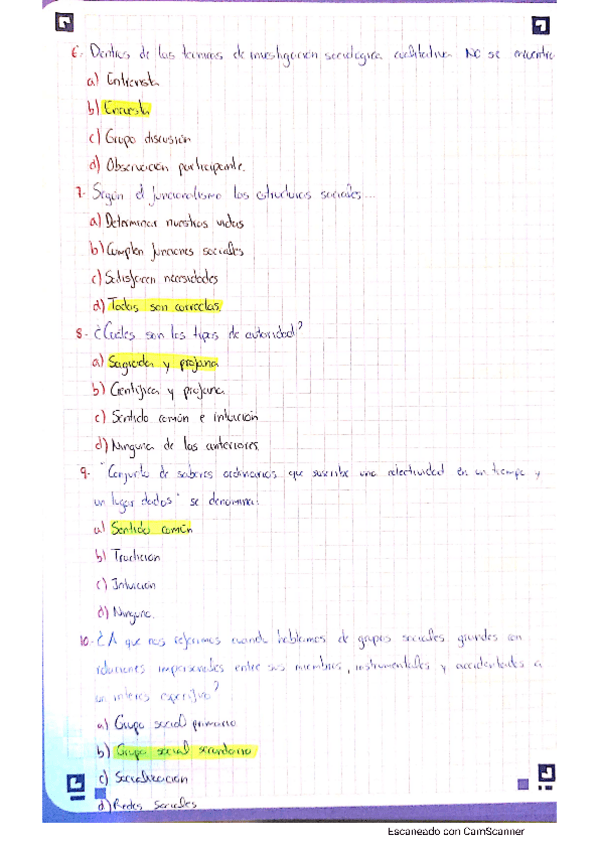 6- Dentro de las técnicas de investigación sociológica cualitativa NO se encuentra
a) Entrevista
b) Encuesta
c) Grupo discusión
d) Observación participante.
7- Según el funcionalismo las estructuras sociales...
a) Determinan nuestras vidas
b) Cumplen funciones sociales
c) Satisfacen necesidades
d) Todas son correctas.
8- ¿Cuáles son los tipos de autoridad?
a) Sagrada y profana
b) Científica y profana
c) Sentido común e intuición
d) Ninguna de las anteriores.
9- "Conjunto de saberes ordinarios que suscribe una colectividad en un tiempo y
un lugar dados" se denomina:
a) Sentido común
b) Tradición
c) Intuición
d) Ninguna.
10- ¿A que nos referimos cuando hablamos de grupos sociales grandes con
relaciones impersonales entre sus miembros, instrumentales y a
un interés específico?
a) Grupo social primario
b) Grupo social secundario
c) Socialización
d) Redes Sociales
Escaneado con CamScanner